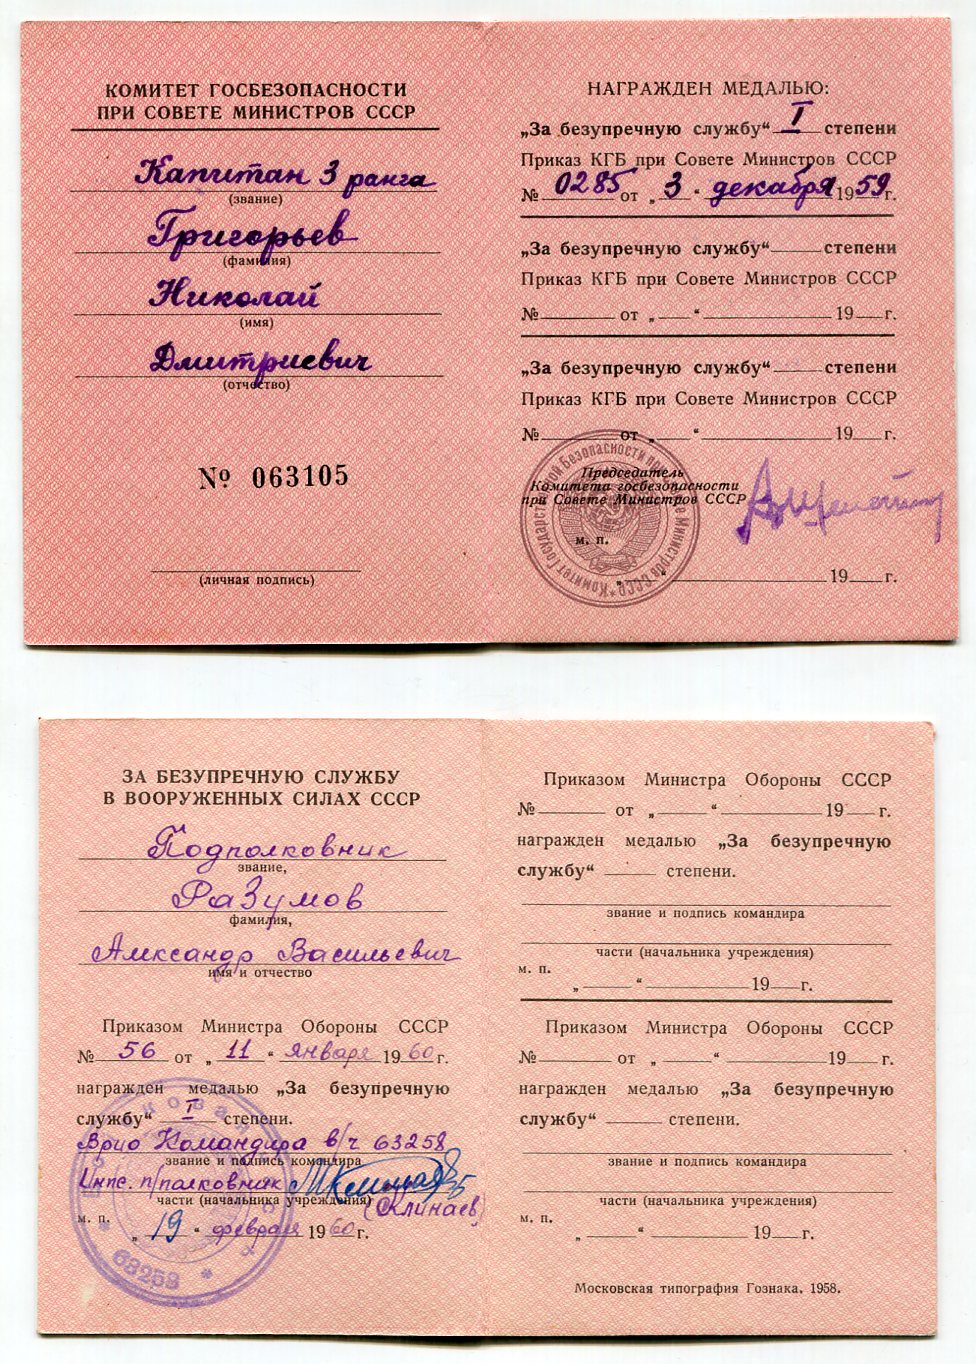 КОМИТЕТ ГОСБЕЗОПАСНОСТИ
ПРИ СОВЕТЕ МИНИСТРОВ СССР
Капитан 3 ранга
(звание)
Григорьев
(фамилия)
Николай
(имя)
Дмитриевич
(отчество)
№ 063105
(личная подпись)
НАГРАЖДЕН МЕДАЛЬЮ:
„За безупречную службу“ I степени
Приказ КГБ при Совете Министров СССР
№ 0285 от „3“ декабря 1959 г.
„За безупречную службу“ степени
Приказ КГБ при Совете Министров СССР
№ от „ “ 19 г.
„За безупречную службу“ степени
Приказ КГБ при Совете Министров СССР
№ от „ “ 19 г.
Председатель
Комитета госбезопасности
при Совете Министров СССР
м. п.
„ “ 19 г.
Комитет Государственной Безопасности при Совете Министров СССР
ЗА БЕЗУПРЕЧНУЮ СЛУЖБУ
В ВООРУЖЕННЫХ СИЛАХ СССР
Подполковник
звание,
Разумов
фамилия,
Александр Васильевич
имя и отчество
Приказом Министра Обороны СССР
№ 56 от „11“ января 1960 г.
награжден медалью „За безупречную
службу“ I степени.
Врио Командира в/ч 63258
звание и подпись командира
Инж. п/полковник
части (начальника учреждения)
(Клинаев)
м. п.
„19“ февраля 1960 г.
63258
Приказом Министра Обороны СССР
№ от „ “ 19 г.
награжден медалью „За безупречную
службу“ степени.
звание и подпись командира
части (начальника учреждения)
м. п.
„ “ 19 г.
Приказом Министра Обороны СССР
№ от „ “ 19 г.
награжден медалью „За безупречную
службу“ степени.
звание и подпись командира
части (начальника учреждения)
м. п.
„ “ 19 г.
Московская типография Гознака, 1958.